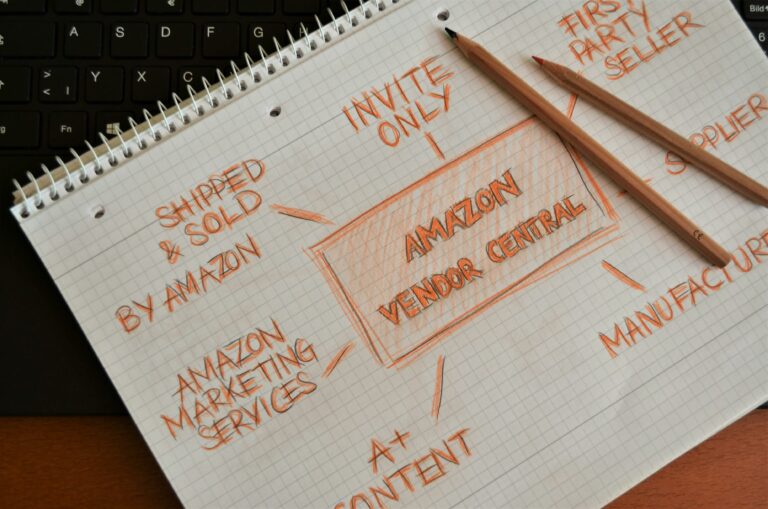 INVITE
ONLY
FIRST
PARTY
SELLER
SUPPLIER
SHIPPED
& SOLD
BY AMAZON
AMAZON
VENDOR CENTRAL
MANUFACTURE
AMAZON
MARKETING
SERVICES
A+
CONTENT
A
S
D
F
G
>
<
|
Y
X
C
Fn
Bild
6